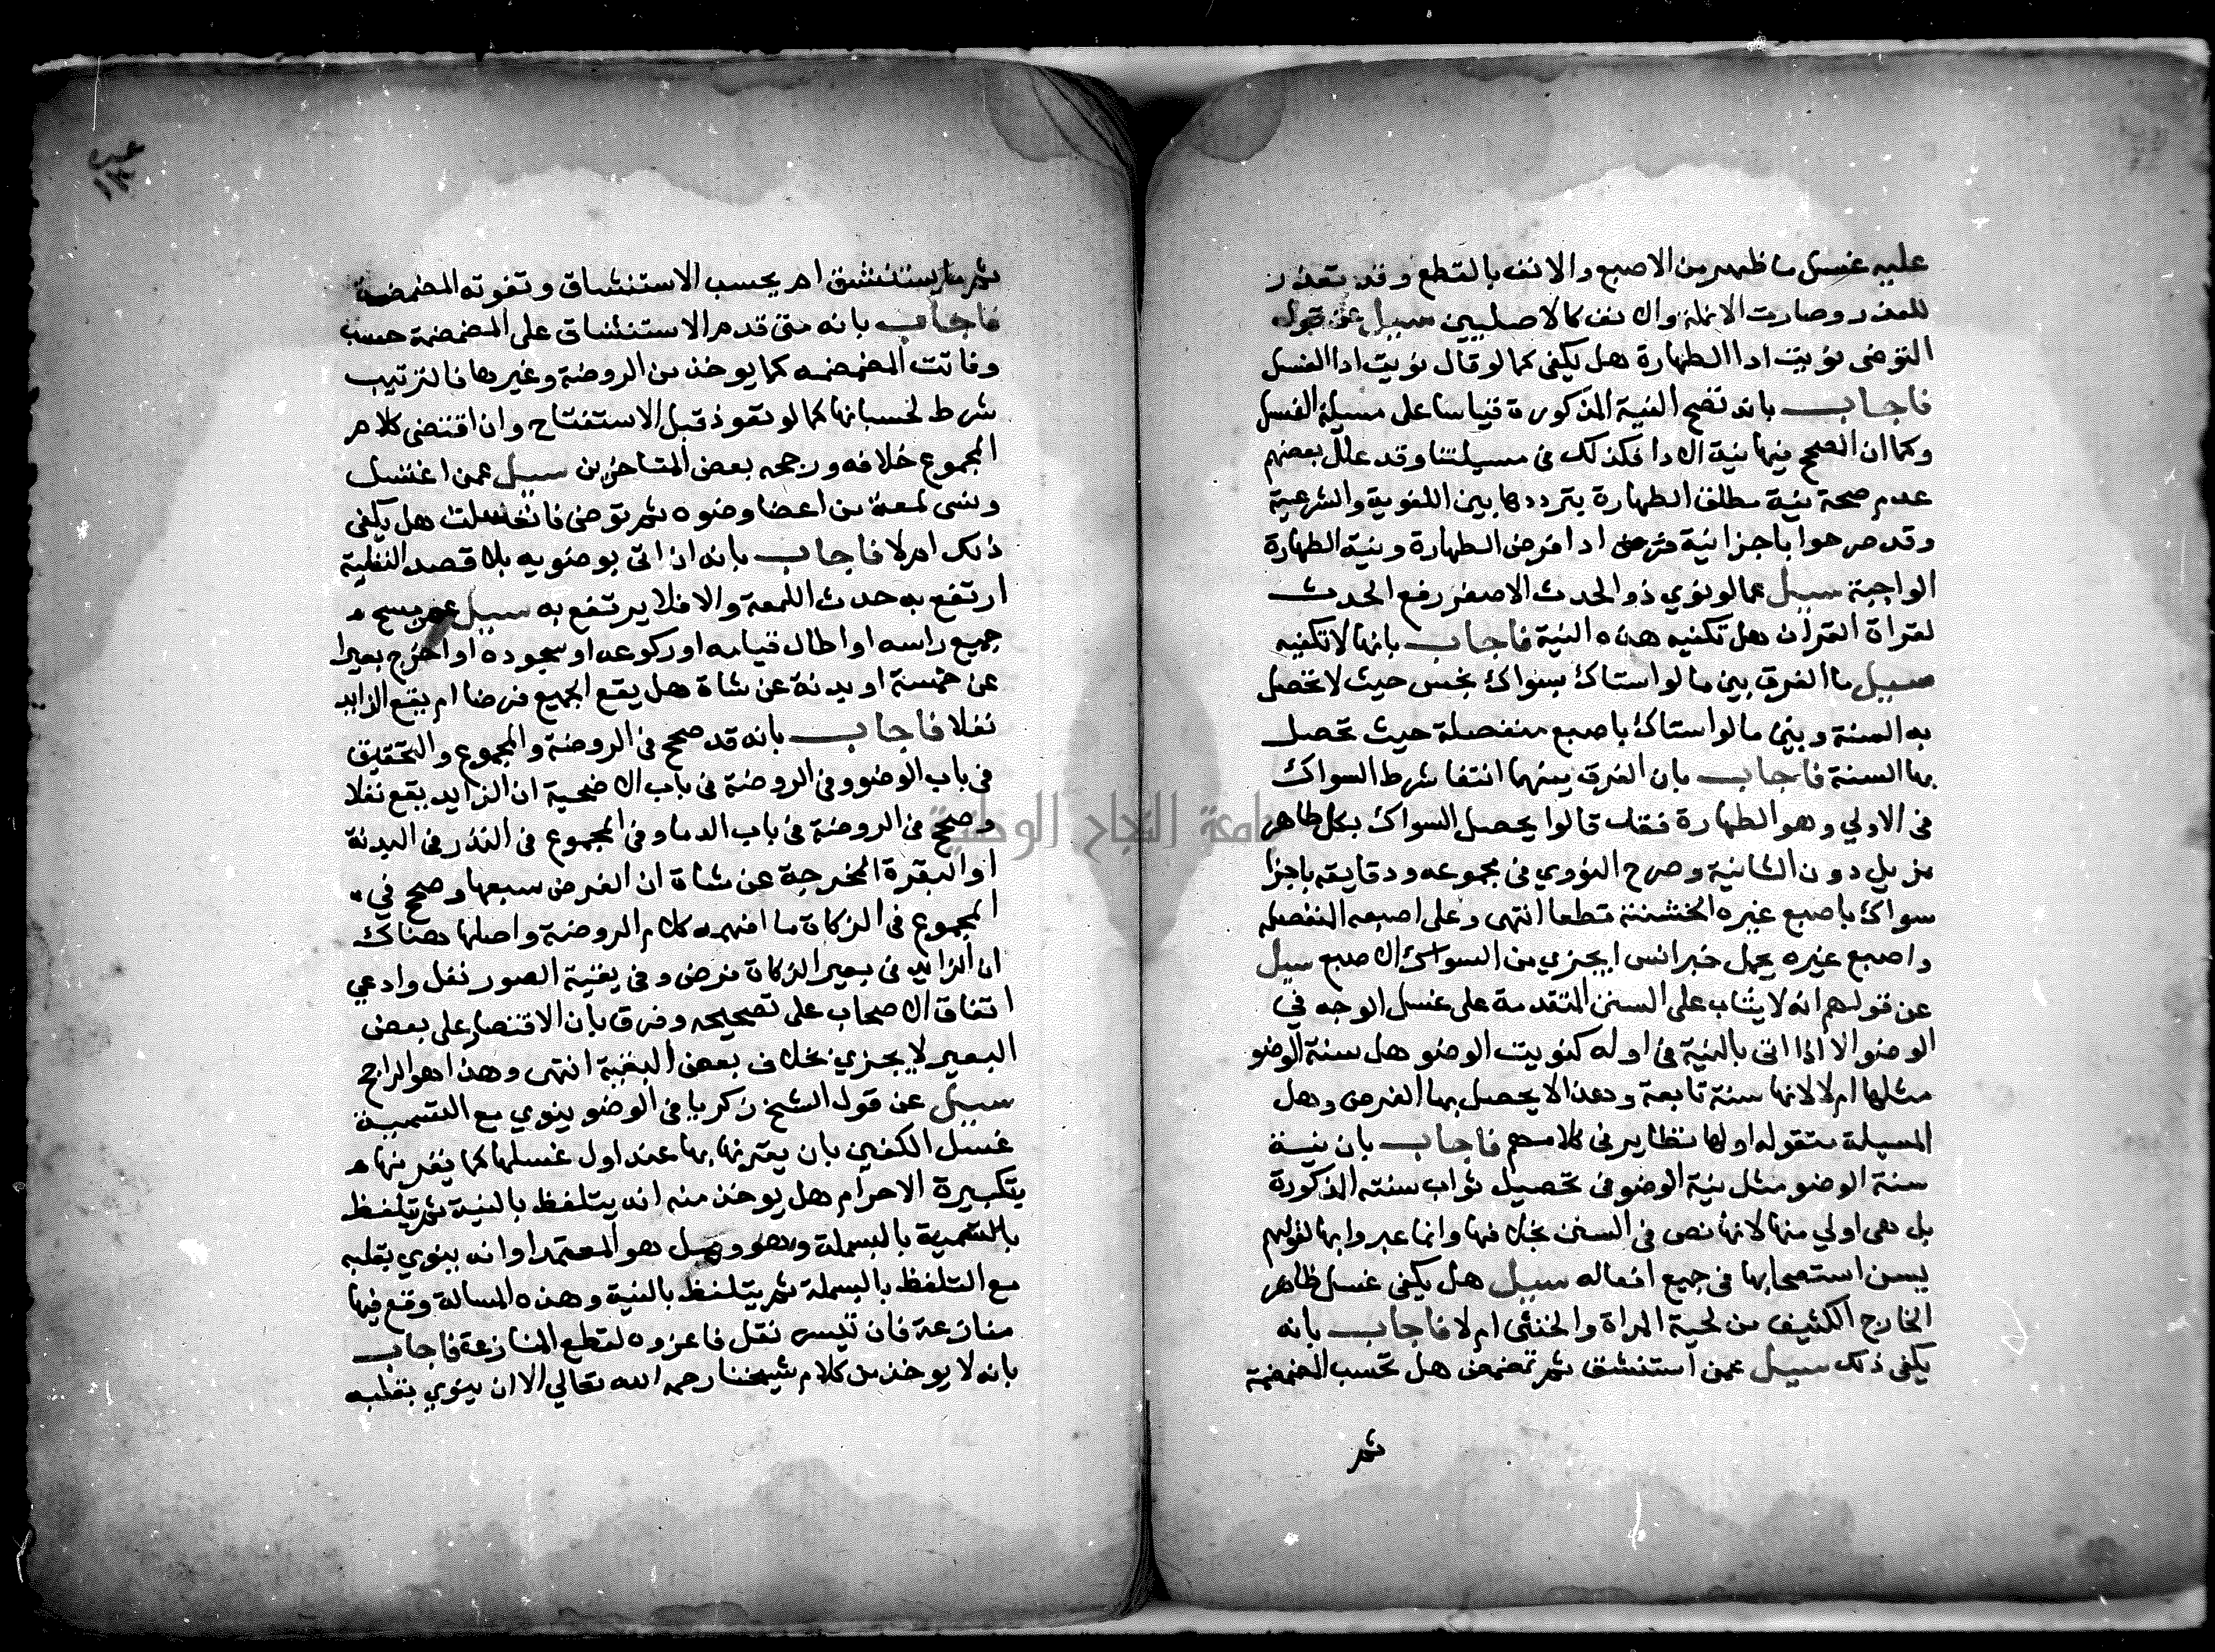 عليه غسل ما ظهر من الاصبع والانف بالقطع وقد تعذر
للعذر وصارت الانملة والانف كالاصليين سيل عن قول
المتوضى نويت ادا الطهارة هل يكفى كما لو قال نويت ادا الغسل
فاجاب بانه تصح النية المذكورة قياسا على مسيلة الغسل
وكما ان الصحيح فيها نية الادا فكذلك فى مسيلتنا وقد علل بعضهم
عدم صحة نية مطلق الطهارة بترددها بين اللغوية والشرعية
وقد صرحوا باجزا نية ادا فرض الطهارة ونية الطهارة
الواجبة سيل عما لو نوي ذو الحدث الاصغر رفع الحدث
لقراة القران هل تكفيه هذه النية فاجاب بانها لا تكفيه
سيل ما الفرق بين ما لو استاك بسواك نجس حيث لا تحصل
به السنة وبين ما لو استاك باصبع منفصلة حيث تحصل
بها السنة فاجاب بان الفرق بينهما انتفا شرط السواك
فى الاولي وهو الطهارة فقد قالوا يحصل السواك بكل طاهر
مزيل دون الثانية وصرح النووي فى مجموعه ودقايقه باجزا
سواك باصبع غيره الخشنة قطعا انتهى وعلى اصبعه المنفصله
واصبع غيره يحمل خبر انس ايجزي من السواك الاصبع سيل
عن قولهم انه لا يثاب على السنن المتقدمة على غسل الوجه في
الوضو الا اذا اتى بالنية فى اوله كنويت الوضو هل سنة الوضو
مثلها ام لا لانها سنة تابعة وهذا لا يحصل بها الفرض وهل
المسيلة منقوله او لها نظاير فى كلامهم فاجاب بان نية
سنة الوضو مثل نية الوضو فى تحصيل ثواب سننه المذكورة
بل هى اولي منها لانها نص فى السنن بخلافها وانما عبروا بها لقولهم
يسن استصحابها فى جميع افعاله سيل هل يكفى غسل ظاهر
الخارج الكثيف من لحية المراة والخنثى ام لا فاجاب بانه
يكفى ذلك سيل عمن استنشق ثم تمضمض هل تحسب المضمضة
ثم
ثم يستنشق ام يحسب الاستنشاق وتفوته المضمضة
فاجاب بانه متى قدم الاستنشاق على المضمضة حسب
وفاتت المضمضه كما يوخذ من الروضة وغيرها فالترتيب
شرط لحسبانها كما لو تعوذ قبل الاستفتاح وان اقتضى كلام
المجموع خلافه ورجحه بعض المتاخرين سيل عمن اغتسل
ونسى لمعة من اعضا وضوه ثم توضى فانغسلت هل يكفى
ذلك ام لا فاجاب بانه ان اتى بوضويه بلا قصد النفلية
ارتفع به حدث اللمعة والا فلا يرتفع به سيل عمن مسح
جميع راسه او اطال قيامه او ركوعه او سجوده او اخرج بعيرا
عن خمسة او بدنة عن شاة هل يقع الجميع فرضا ام يقع الزايد
نفلا فاجاب بانه قد صحح فى الروضة والمجموع والتحقيق
فى باب الوضو وفى الروضة فى باب الاضحية ان الزايد يقع نفلا
وصحح فى الروضة فى باب الدما وفى المجموع فى النذر فى البدنة
او البقرة المخرجة عن شاة ان الفرض سبعها وصحح في
المجموع فى الزكاة ما افهمه كلام الروضة واصلها هناك
ان الزايد فى بعير الزكاة فرض وفى بقية الصور نفل وادعي
اتفاق الاصحاب على تصحيحه وفرق بان الاقتصار على بعض
البعير لا يجزي بخلاف بعض البقية انتهى وهذا هو الراجح
سيل عن قول الشيخ زكريا فى الوضو ينوي مع التسمية
غسل الكفين بان يقرنها بها عند اول غسلها كما يقرنها
بتكبيرة الاحرام هل يوخذ منه انه يتلفظ بالنية ثم يتلفظ
بالتسمية بالبسملة وهل هو المعتمد او انه ينوي بقلبه
مع التلفظ بالبسملة ثم يتلفظ بالنية وهذه المسالة وقع فيها
منازعة فان تيسر نقل فاعزوه لقطع المنازعة فاجاب
بانه لا يوخذ من كلام شيخنا رحمه الله تعالي الا ان ينوي بقلبه
جامعة النجاح الوطنية